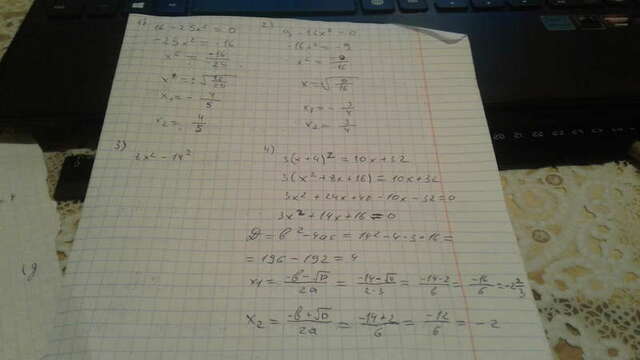 1) 16 - 25x² = 0
- 25x² = -16
x² = -16/25
x = ±√16/25
x₁ = - 4/5
x₂ = 4/5
2) 9 - 16x² = 0
-16x² = -9
x² = 9/16
x = ±√9/16
x₁ = - 3/4
x₂ = 3/4
3)
4) 3(x+4)² = 10x+32
3(x²+8x+16) = 10x+32
3x²+24x+48-10x-32=0
3x²+14x+16=0
D = b²-4ac = 14²-4·3·16 =
= 196 - 192 = 4
x₁ = -b-√D/2a = -14-√4/2·3 = -14-2/6 = -16/6 = -2 2/3
x₂ = -b+√D/2a = -14+2/6 = -12/6 = -2